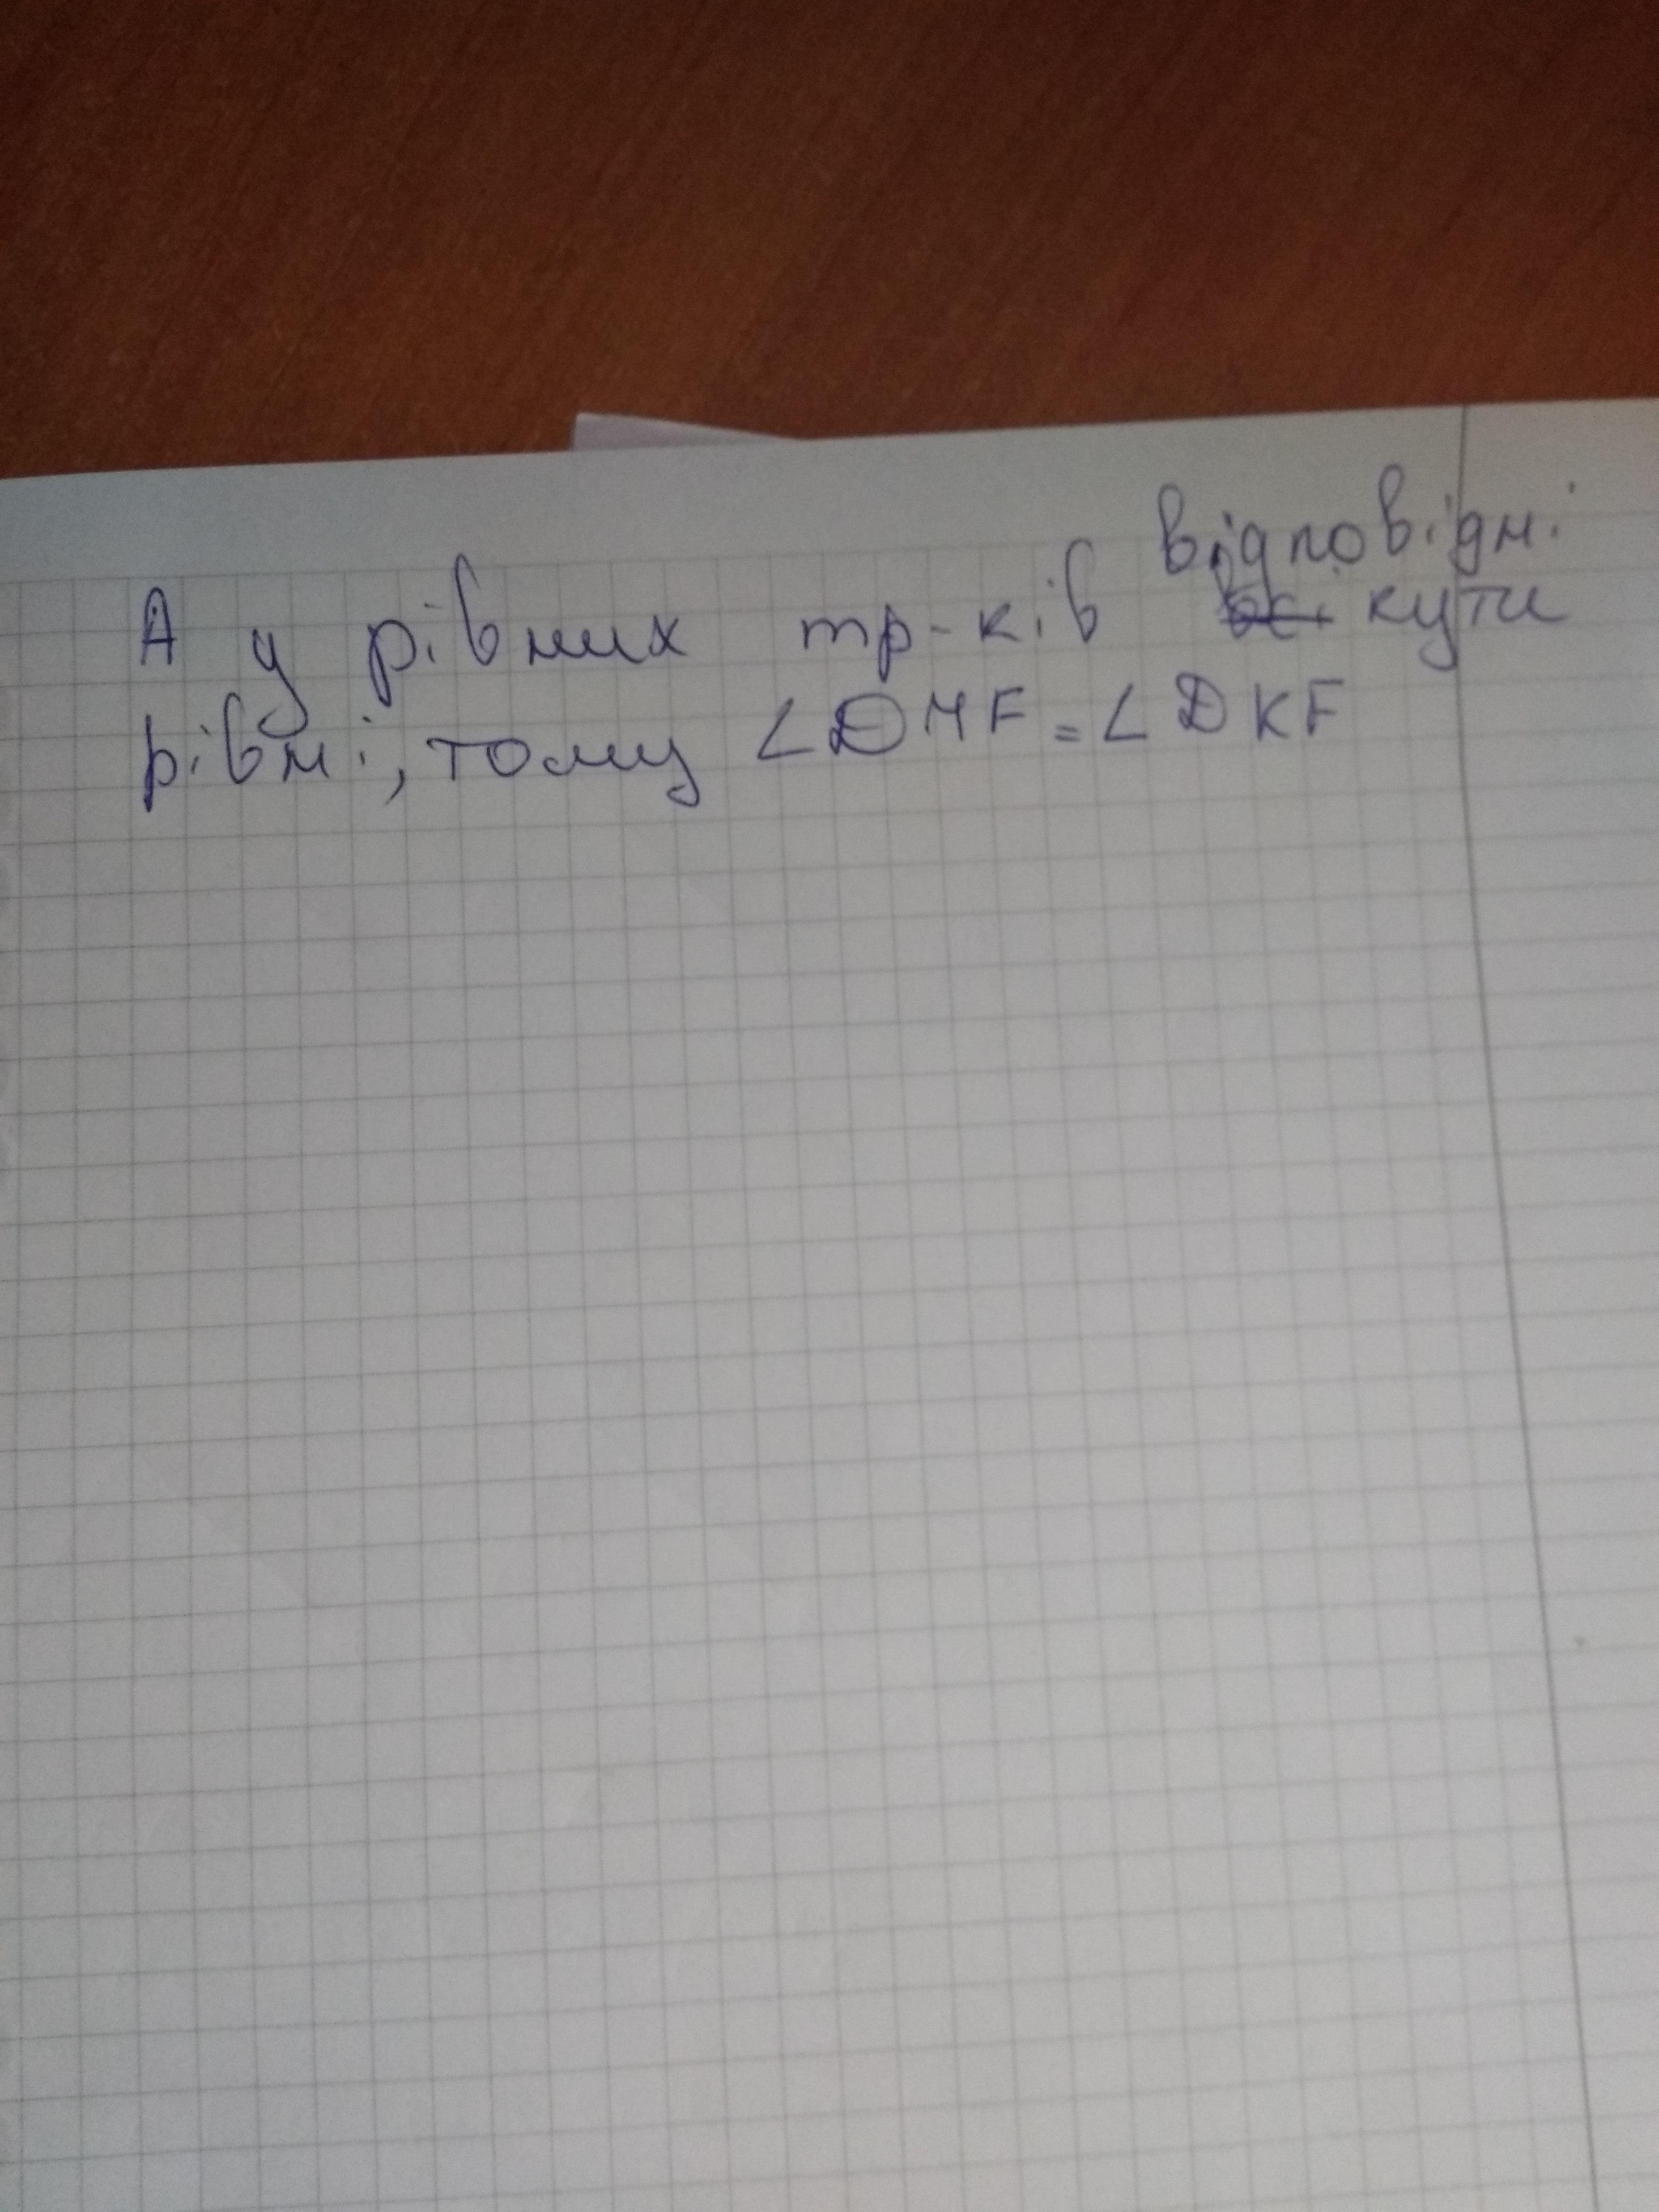 А у рівних тр-ків відповідні кути
рівні, тому ∠DMF = ∠DKF